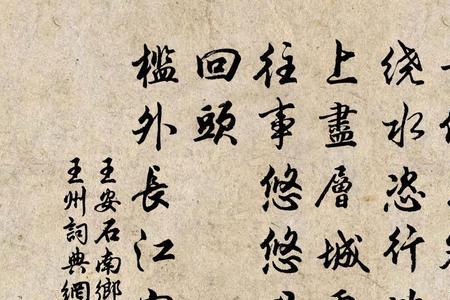 绕水恣行
上盡層城
往事悠悠
回頭
檻外長江
王安石南鄉
王州詞典網